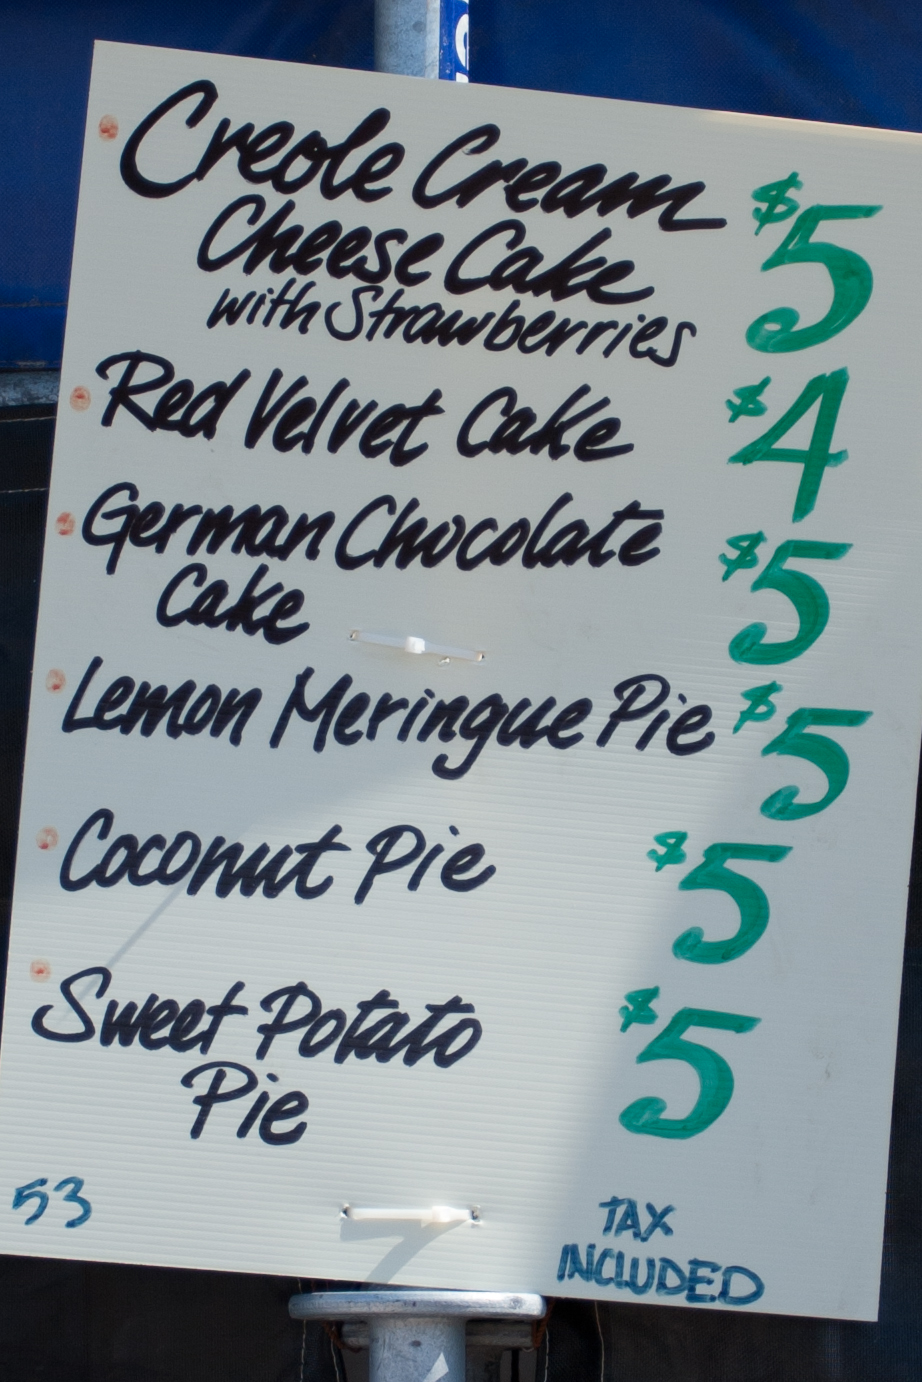 Creole Cream $5
Cheese Cake
with Strawberries
Red Velvet Cake $4
German Chocolate $5
Cake
Lemon Meringue Pie $5
Coconut Pie $5
Sweet Potato $5
Pie
53
TAX
INCLUDED